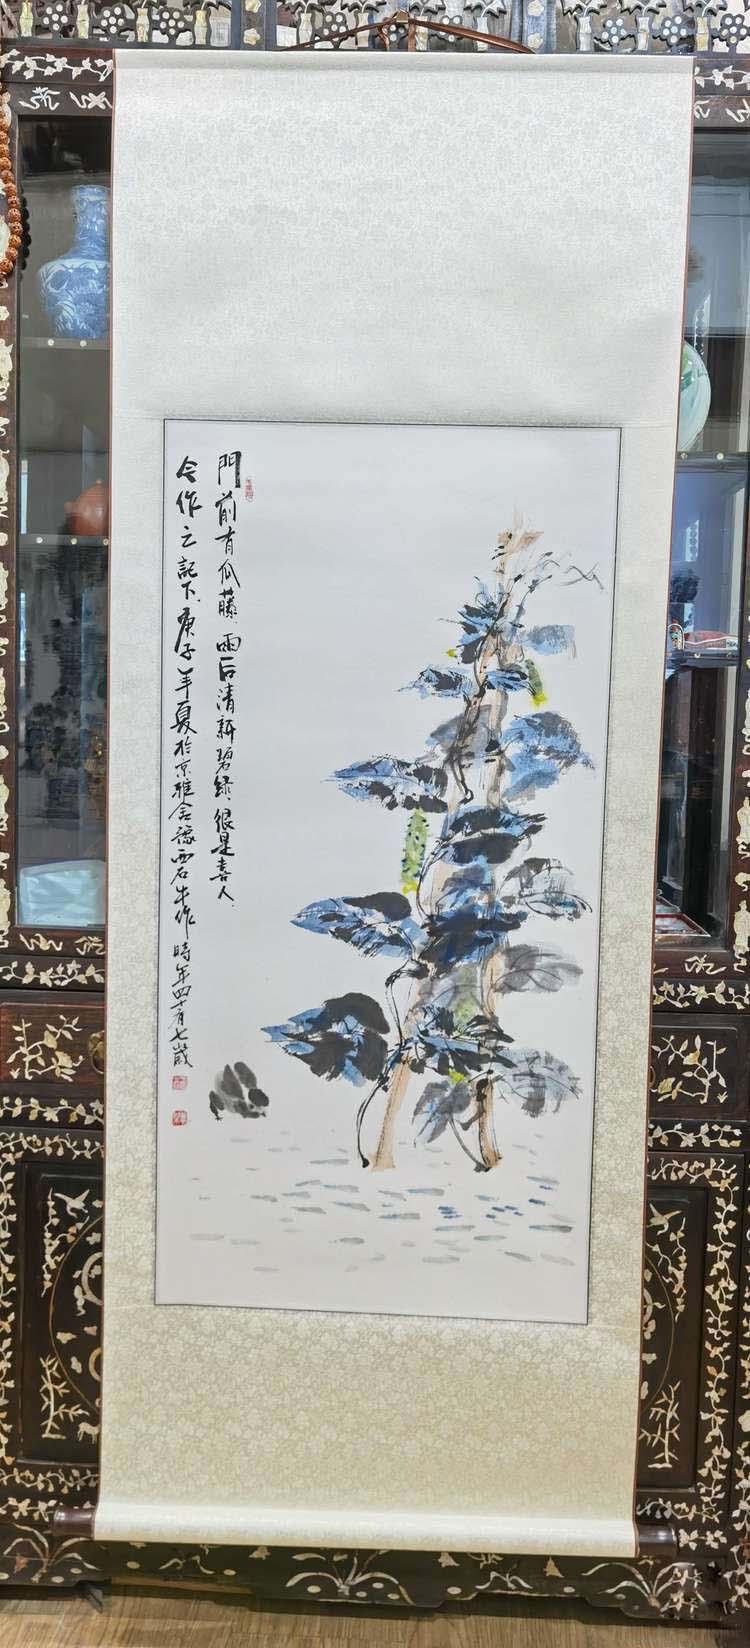 門前有瓜藤、雨后清新碧绿、很是喜人、
今作之記下、庚子年夏於京雅舍豫西石牛作
時年四十有七歲